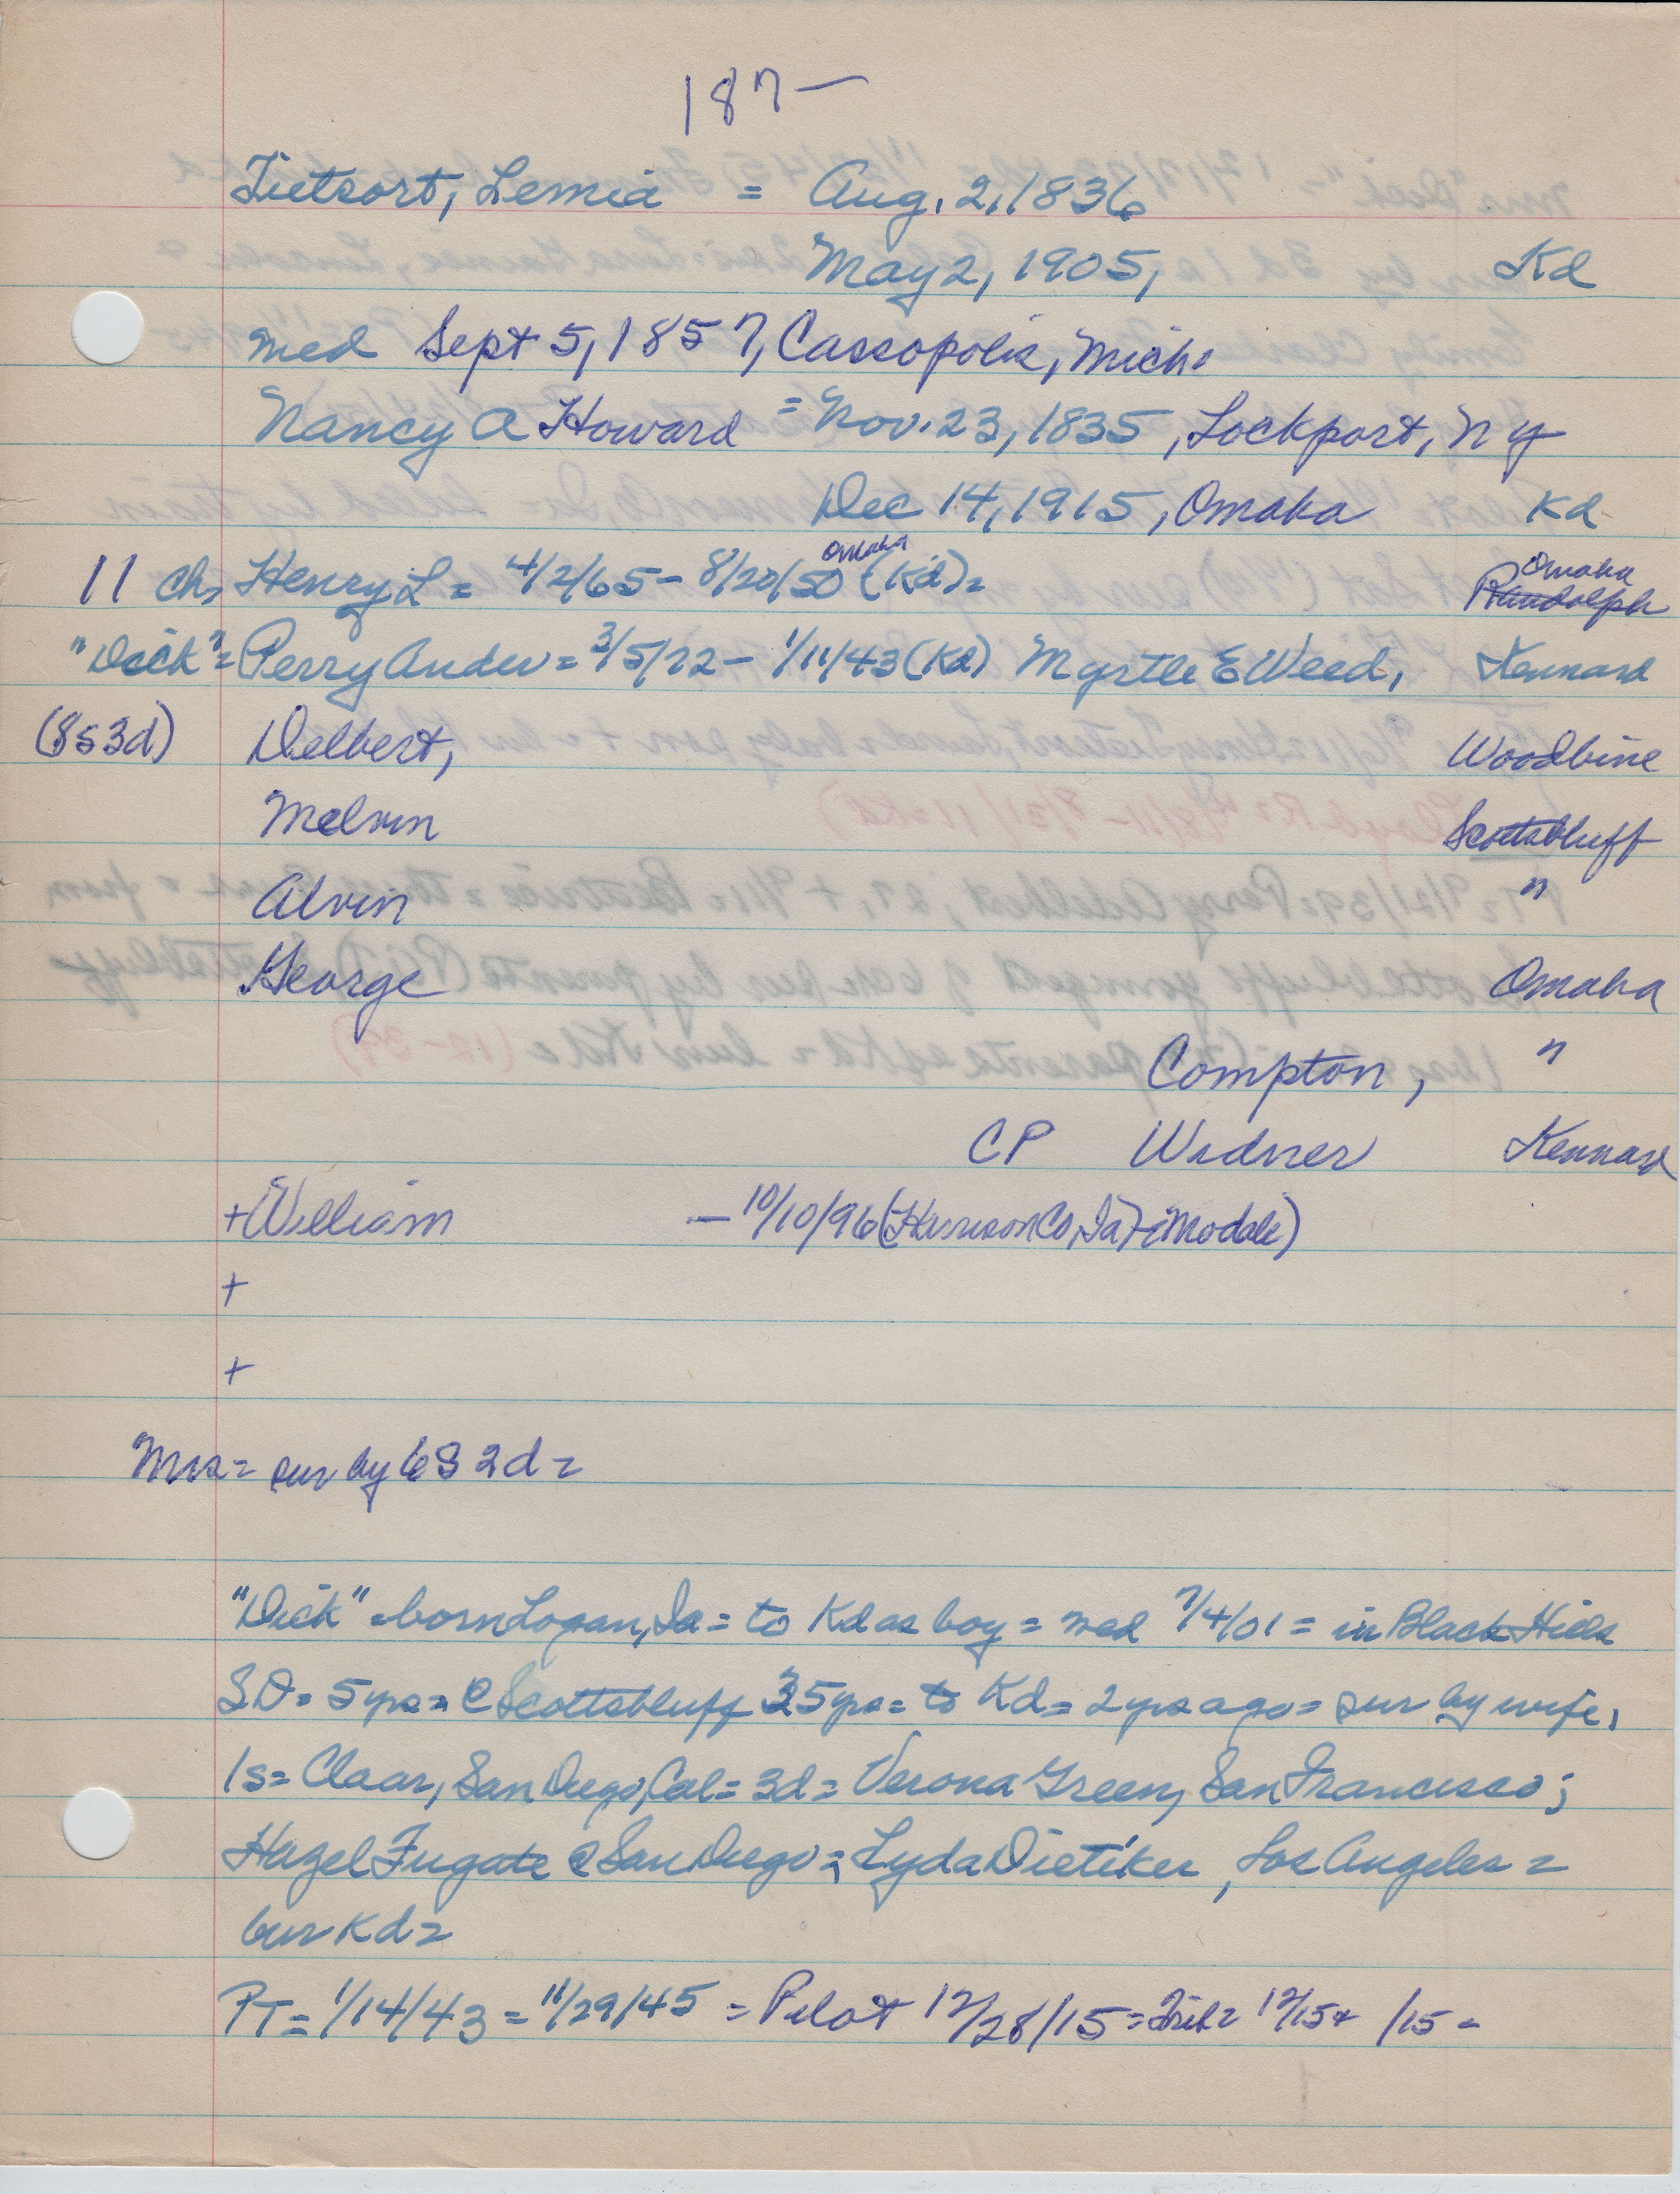 187—
Tietsort, Lemia = Aug. 2, 1836
May 2, 1905, Kd
med Sept 5, 1857, Cassopolis, Mich.
Nancy A Howard = Nov. 23, 1835, Lockport, NY
Dec 14, 1915, Omaha Kd
11 ch, Henry L = 4/2/65 – 8/20/50 Omaha (Kd) = Omaha Randolph
"Dick" = Perry Ander = 3/5/72 – 1/11/43 (Kd) Myrtle E Weed, Kennard
(8s 3d) Delbert, Woodbine
Melvin Scottsbluff
Alvin "
George Omaha
Compton, "
CP Widner Kennard
+ William — 10/10/96 (Harrison Co, Ia) Modale)
+
+
Mrs = sur by 6 S 2d =
"Dick" = born Logan, Ia = to Kd as boy = med 7/4/01 = in Black Hills
SD = 5 yrs = @ Scottsbluff 35 yrs = to Kd = 2 yrs ago = sur by wife,
1s = Claar, San Diego, Cal = 3d = Verona Green, San Francisco;
Hazel Fugate @ San Diego; Lyda Dietiker, Los Angeles =
bur Kd =
PT = 1/14/43 = 11/29/45 = Pilot 12/28/15 = Trib = 12/15 + /15 =